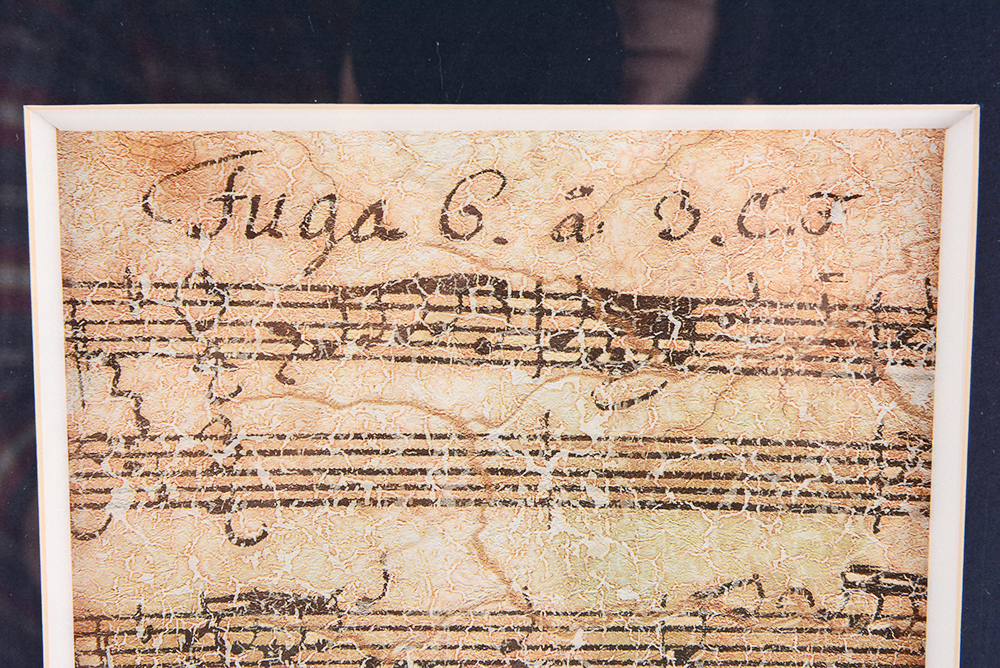 Fuga 6. ä 3.